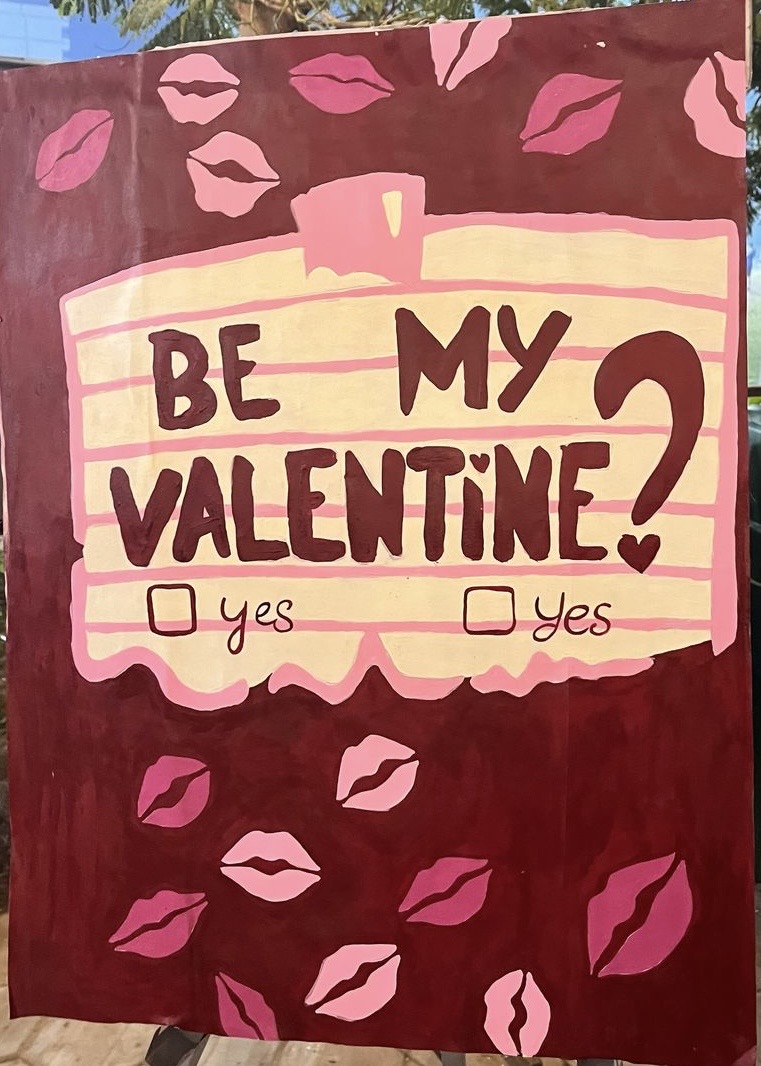 BE MY
VALENTiNE?
yes yes